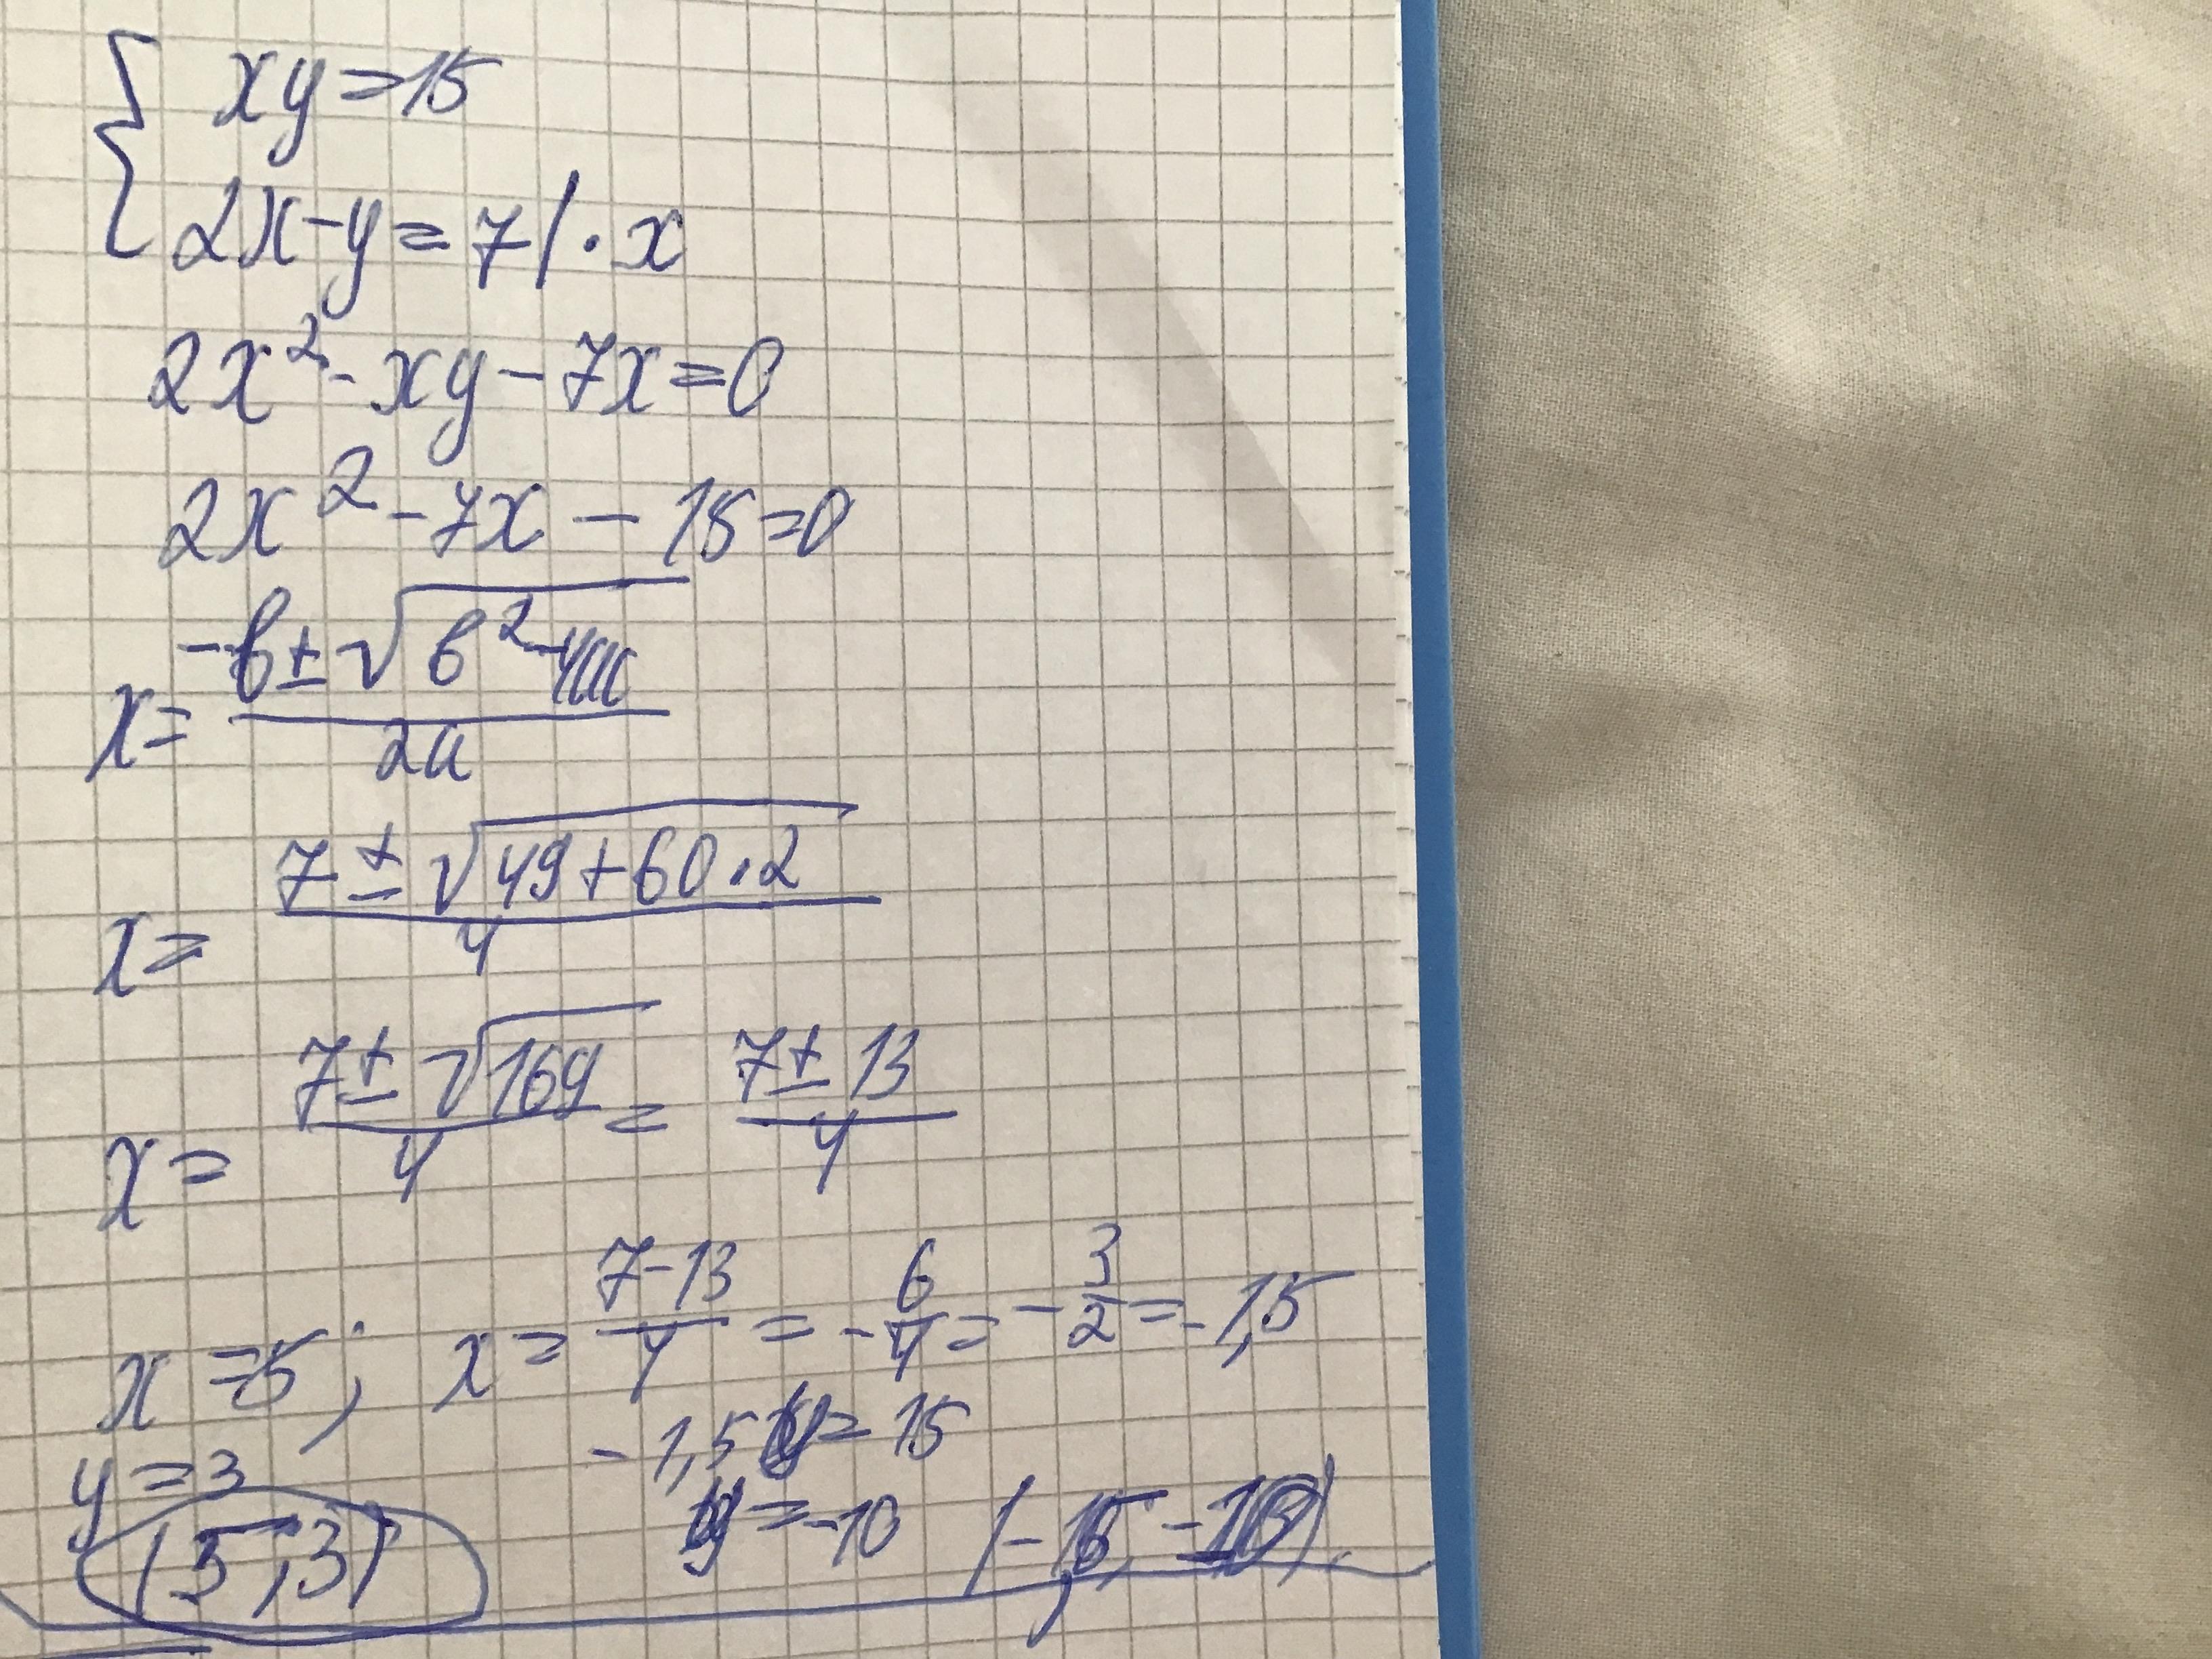 { xy=15
2x-y=7 | · x
2x²-xy-7x=0
2x²-7x-15=0
x= (-b±√(b²-4ac))/2a
x= (7±√(49+60·2))/4
x= (7±√169)/4 = (7±13)/4
x=5; x= (7-13)/4 = -6/4 = -3/2 = -1,5
y=3
-1,5y=15
y=-10
(5,3)
(-1,5, -10)